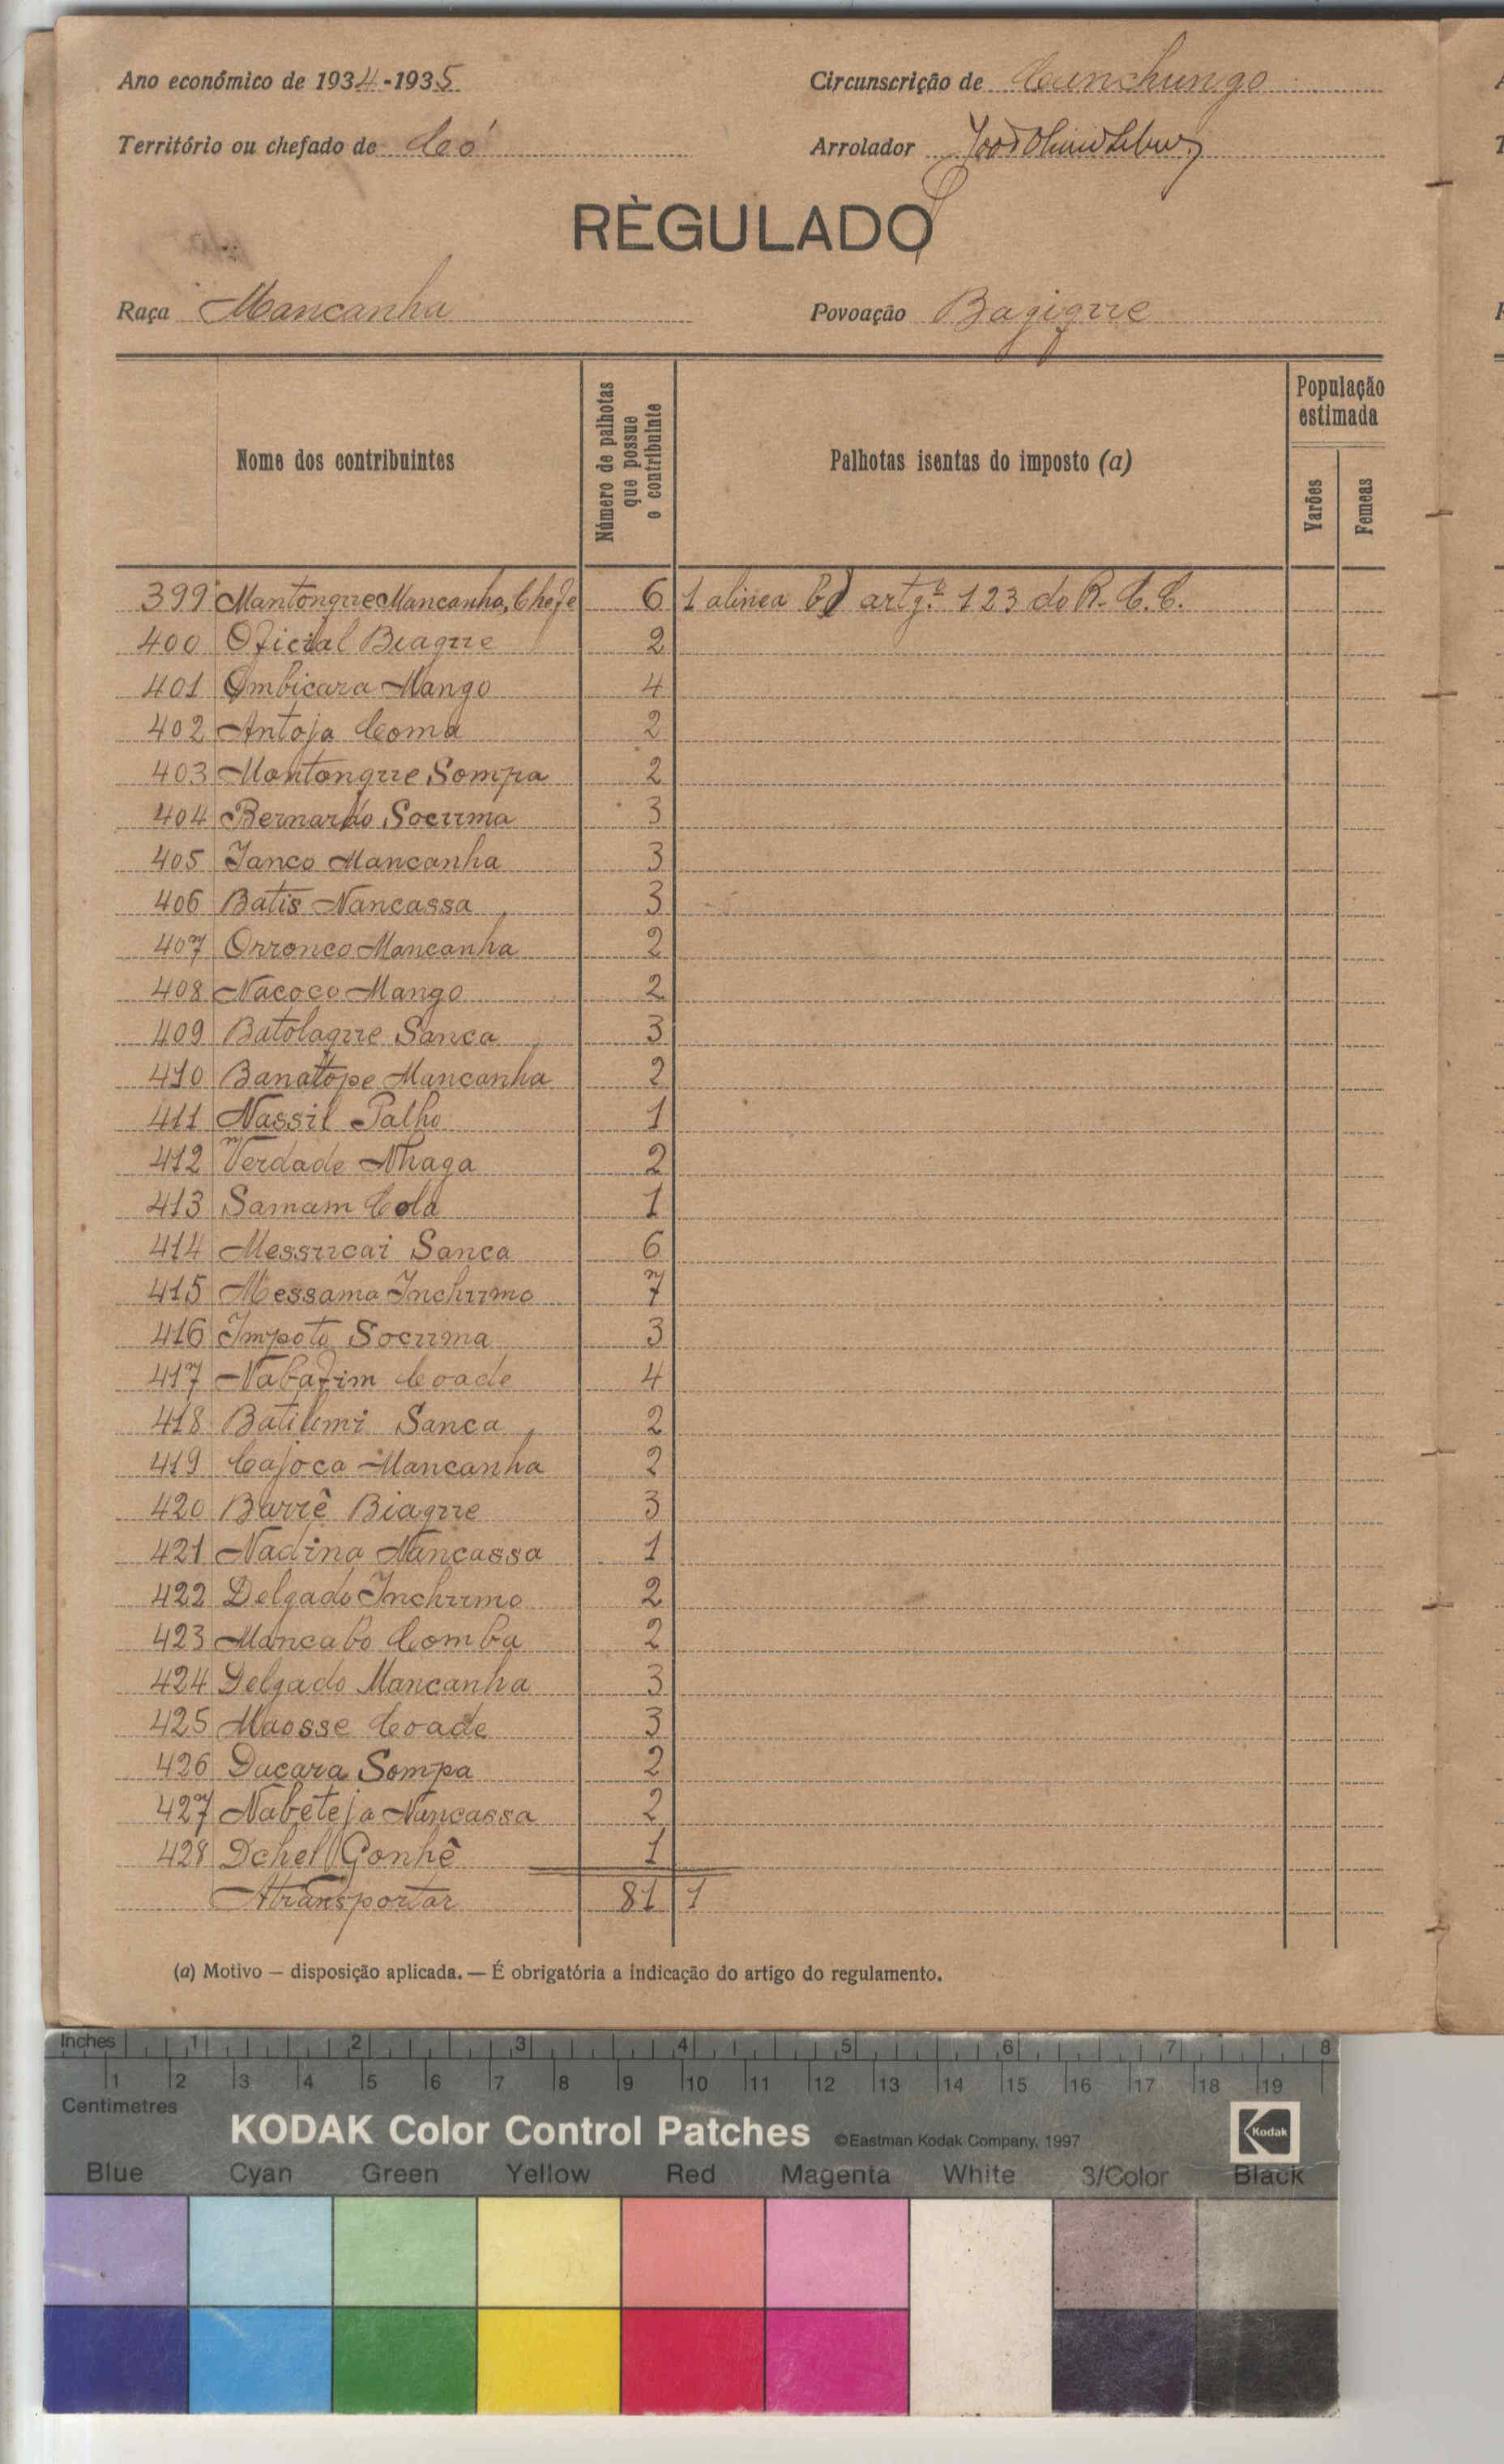 Ano económico de 1934-1935 Circunscrição de Canchungo
Território ou chefado de Có Arrolador
RÈGULADO
Raça Mancanha Povoação Bagigue
Nome dos contribuintes
Número de palhotas que possue o contribuinte
Palhotas isentas do imposto (a)
População estimada
Varões
Femeas
399 Mantongue Mancanha, Chefe 6 1 alinea b) artgº. 123 do R. C. C.
400 Oficial Biague 2
401 Ombicara Mango 4
402 Antoja Coma 2
403 Montongue Sompa 2
404 Bernardo Socuma 3
405 Janco Mancanha 3
406 Batis Nancassa 3
407 Orronco Mancanha 2
408 Nacoco Mango 2
409 Batolague Sanca 3
410 Banatope Mancanha 2
411 Nassil Palho 1
412 Verdade Nhaga 2
413 Samam Cola 1
414 Messucai Sanca 6
415 Messama Inchumo 7
416 Impoto Socuma 3
417 Nabafim Coade 4
418 Batilimi Sanca 2
419 Cajoca Mancanha 2
420 Barrê Biague 3
421 Nadina Nancassa 1
422 Delgado Inchumo 2
423 Mancabo Comba 2
424 Delgado Mancanha 3
425 Maosse Coade 3
426 Dacara Sompa 2
427 Nabeteja Nancassa 2
428 Dchel Gonhê 1
A transportar 81 1
(a) Motivo — disposição aplicada. — É obrigatória a indicação do artigo do regulamento.
Inches 1 2 3 4 5 6 7 8
1 2 3 4 5 6 7 8 9 10 11 12 13 14 15 16 17 18 19
Centimetres
KODAK Color Control Patches ©Eastman Kodak Company, 1997 Kodak
Blue Cyan Green Yellow Red Magenta White 3/Color Black